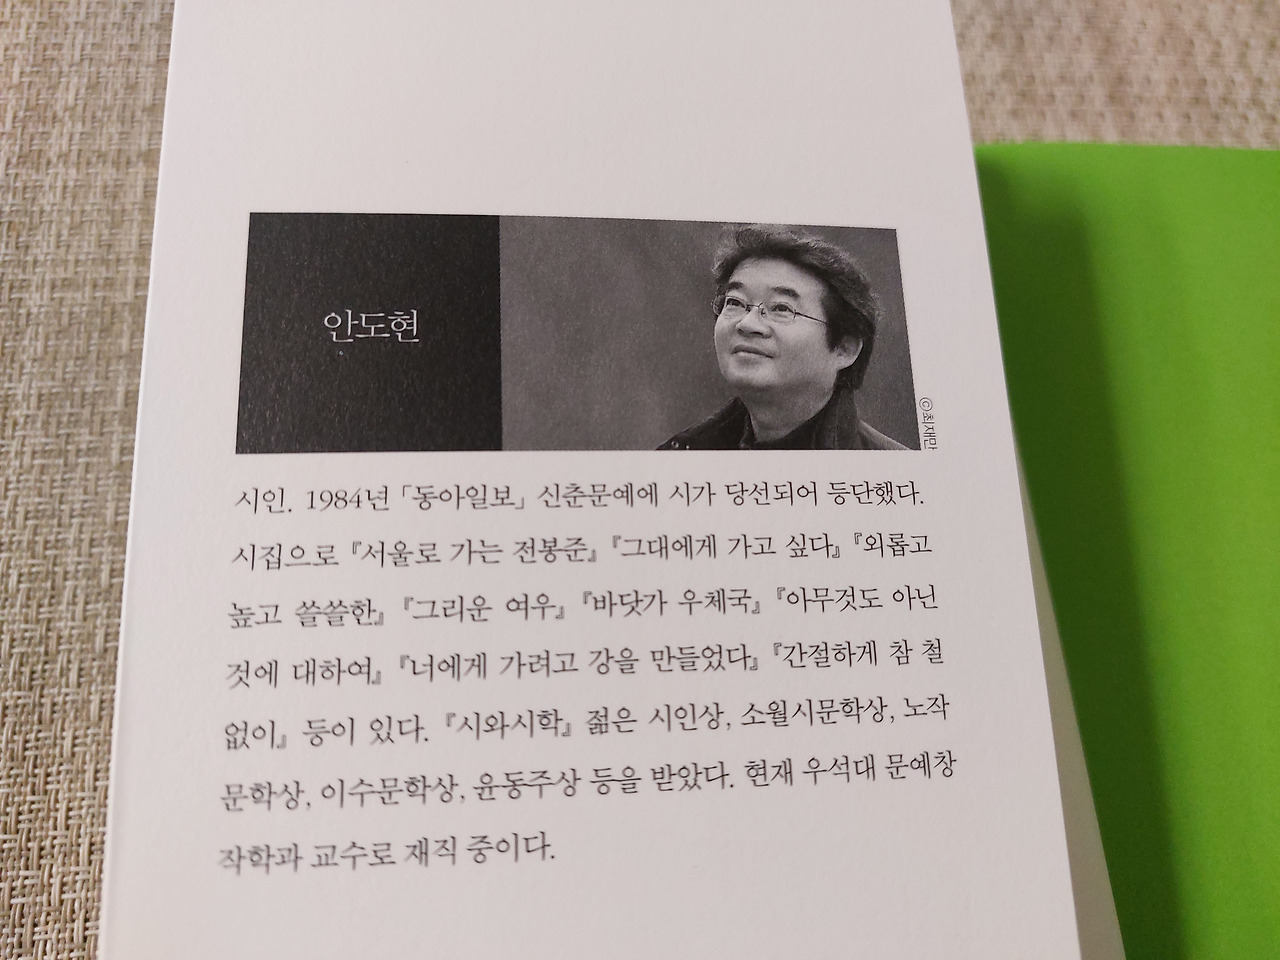 안도현
©최재만
시인. 1984년 「동아일보」 신춘문예에 시가 당선되어 등단했다.
시집으로 『서울로 가는 전봉준』 『그대에게 가고 싶다』 『외롭고
높고 쓸쓸한』 『그리운 여우』 『바닷가 우체국』 『아무것도 아닌
것에 대하여』 『너에게 가려고 강을 만들었다』 『간절하게 참 철
없이』 등이 있다. 『시와시학』 젊은 시인상, 소월시문학상, 노작
문학상, 이수문학상, 윤동주상 등을 받았다. 현재 우석대 문예창
작학과 교수로 재직 중이다.